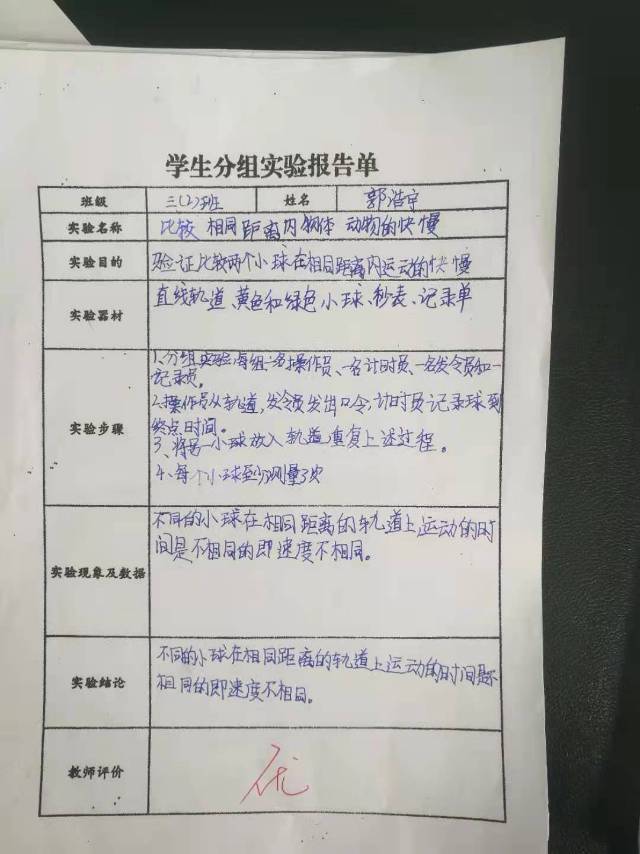 学生分组实验报告单
班级 三(2)班 姓名 郭浩宇
实验名称 比较相同距离内物体动物的快慢
实验目的 验证比较两个小球在相同距离内运动的快慢
实验器材 直线轨道、黄色和绿色小球、秒表、记录单
实验步骤
1、分组实验每组一名操作员、一名计时员、一名发令员和一
记录员。
2、操作员从轨道,发令员发出口令,计时员记录球到
终点时间。
3、将另一小球放入轨道重复上述过程。
4、每个小球至少测量3次
实验现象及数据
不同的小球在相同距离的轨道上运动的时
间是不相同的即速度不相同。
实验结论
不同的小球在相同距离的轨道上运动的时间是不
相同的即速度不相同。
教师评价 优